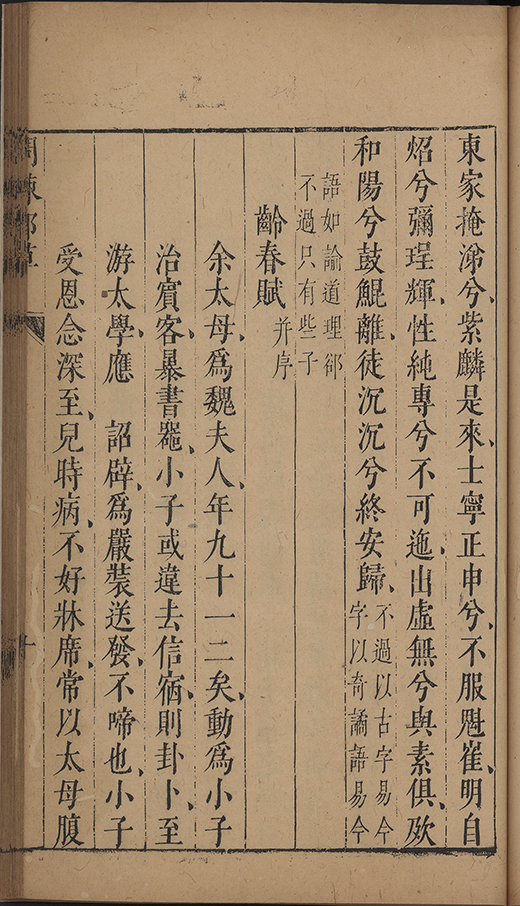 東家掩涕兮、紫麟是來、士寧正申兮、不服尵崔、明自
炤兮彌珵輝、性純專兮不可迤、出虛無兮與素俱、欻
和陽兮鼓鯤離、徒沉沉兮終安歸、不過以古字易今
字以奇譎語易今
語如論道理郤
不過只有些子
齡春賦并序
余太母、爲魏夫人、年九十一二矣、動爲小子
治賓客、暴書、小子或違去信宿、則卦卜、至
游太學、應 詔辟、爲嚴裝送發、不啼也、小子
受恩念深至、兒時病、不好牀席、常以太母腹